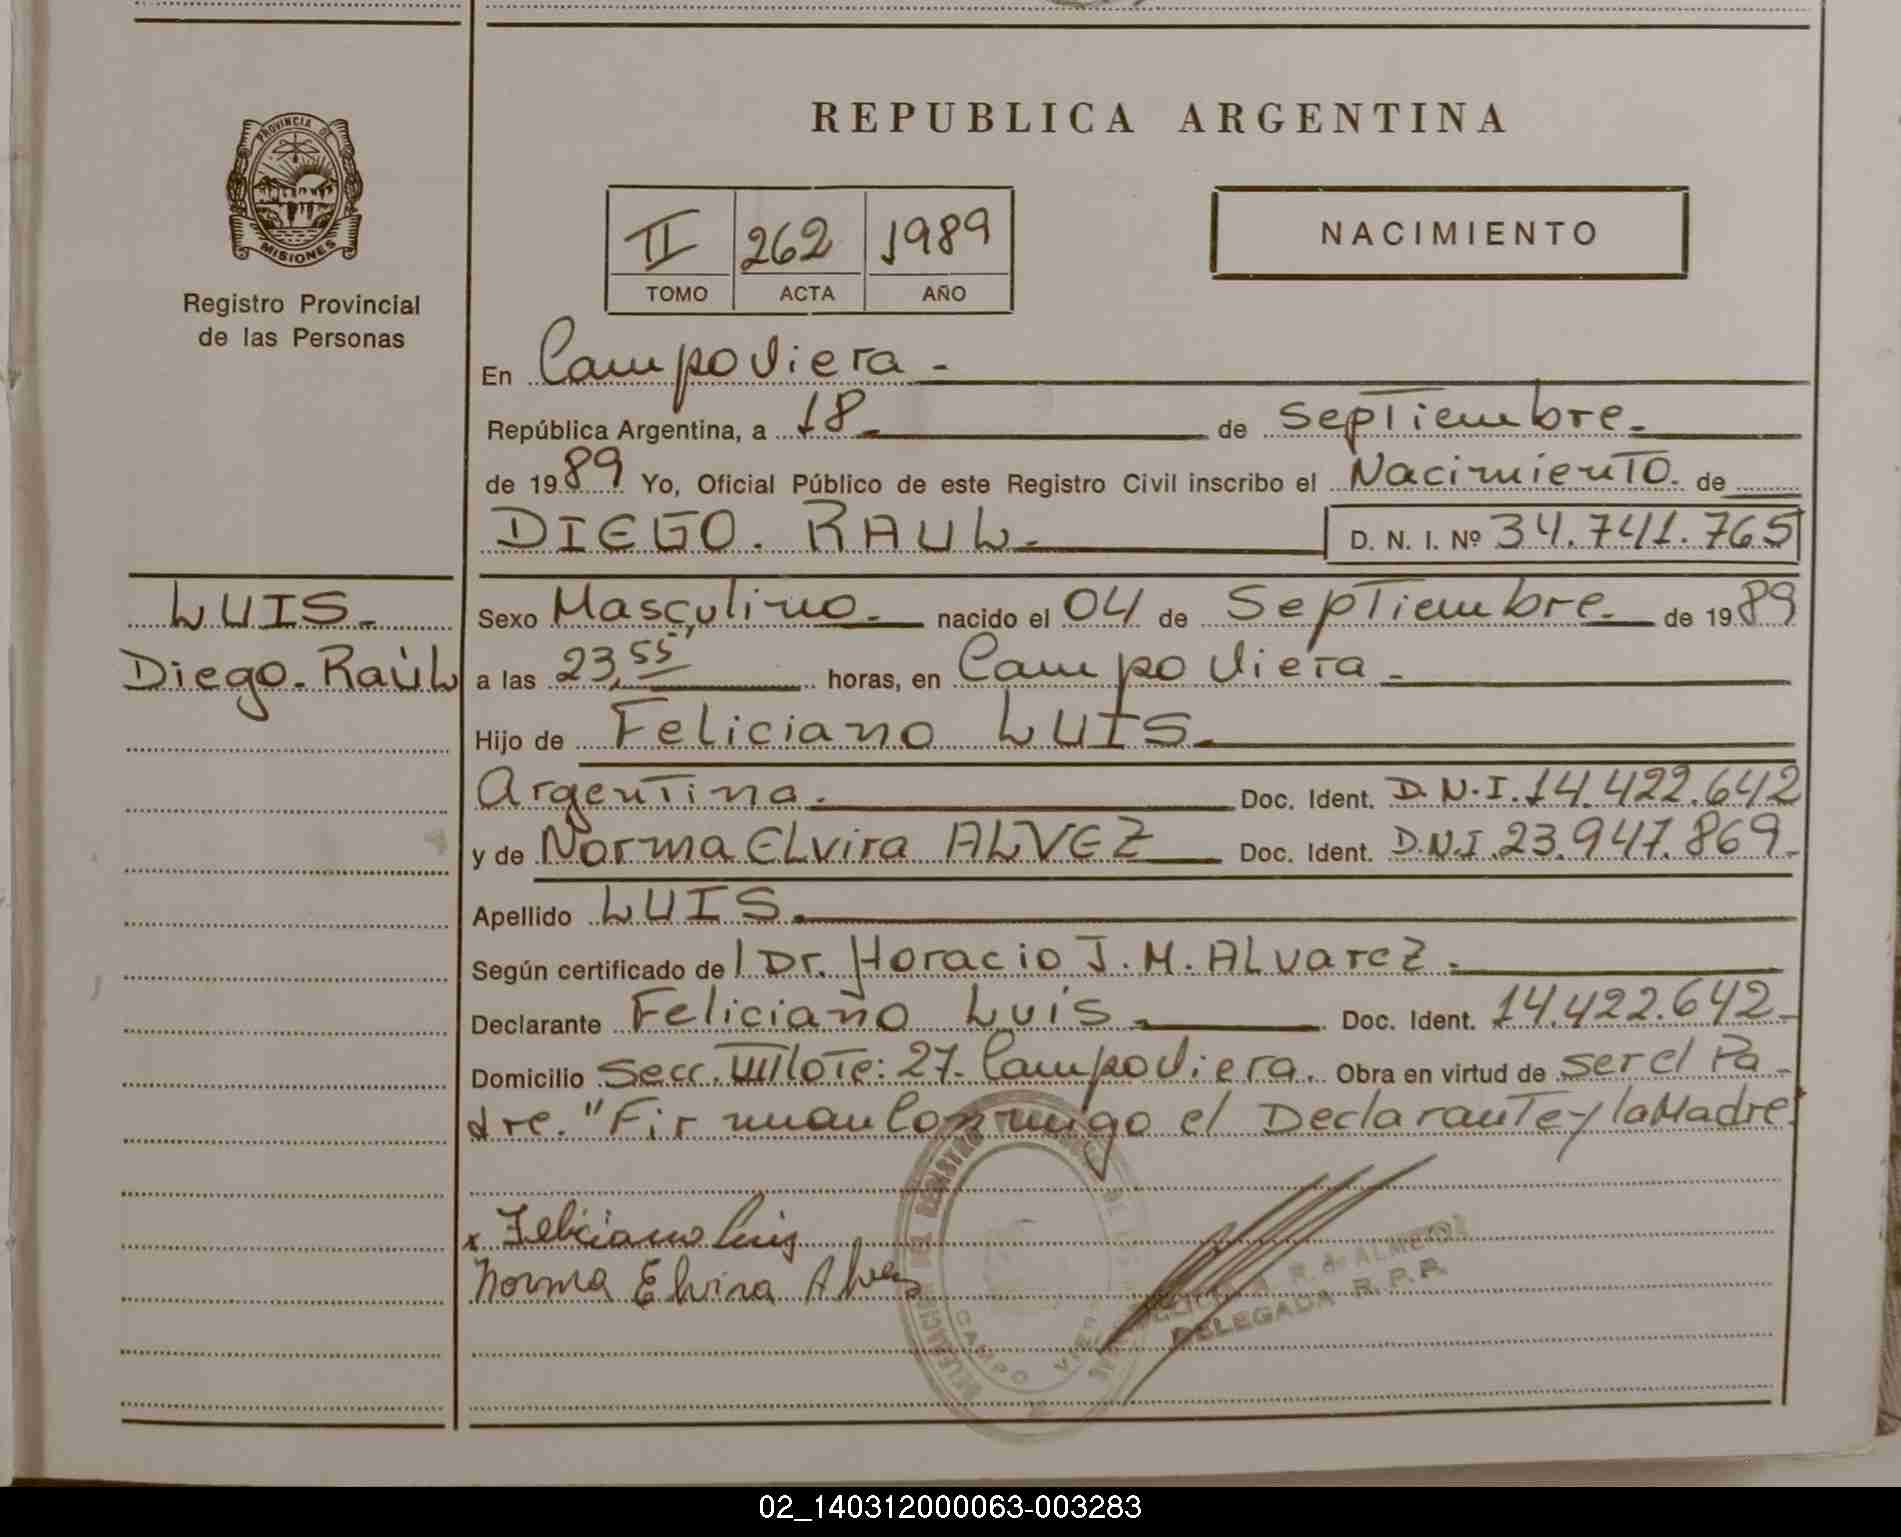 PROVINCIA DE
MISIONES
Registro Provincial
de las Personas
LUIS.
Diego. Raúl
REPUBLICA ARGENTINA
II 262 1989
TOMO ACTA AÑO
NACIMIENTO
En Campo Viera.
República Argentina, a 18 de Septiembre.
de 1989 Yo, Oficial Público de este Registro Civil inscribo el Nacimiento. de
DIEGO. RAUL. D. N. I. Nº 34.741.765
Sexo Masculino. nacido el 04 de Septiembre. de 1989
a las 23,55' horas, en Campo Viera.
Hijo de Feliciano LUIS.
Argentina. Doc. Ident. D.N.I. 14.422.642
y de Norma Elvira ALVEZ Doc. Ident. D.N.I. 23.947.869.
Apellido LUIS.
Según certificado de l Dr. Horacio J. M. Alvarez.
Declarante Feliciano Luis. Doc. Ident. 14.422.642.
Domicilio Secc. III lote: 27. Campo Viera. Obra en virtud de ser el Pa-
dre. "Firman Conmigo el Declarante y la Madre.
x Feliciano Luis
Norma Elvira Alvez
CAMPO VIERA
R. de ALMEIDA
DELEGADA R.P.P.
02_140312000063-003283